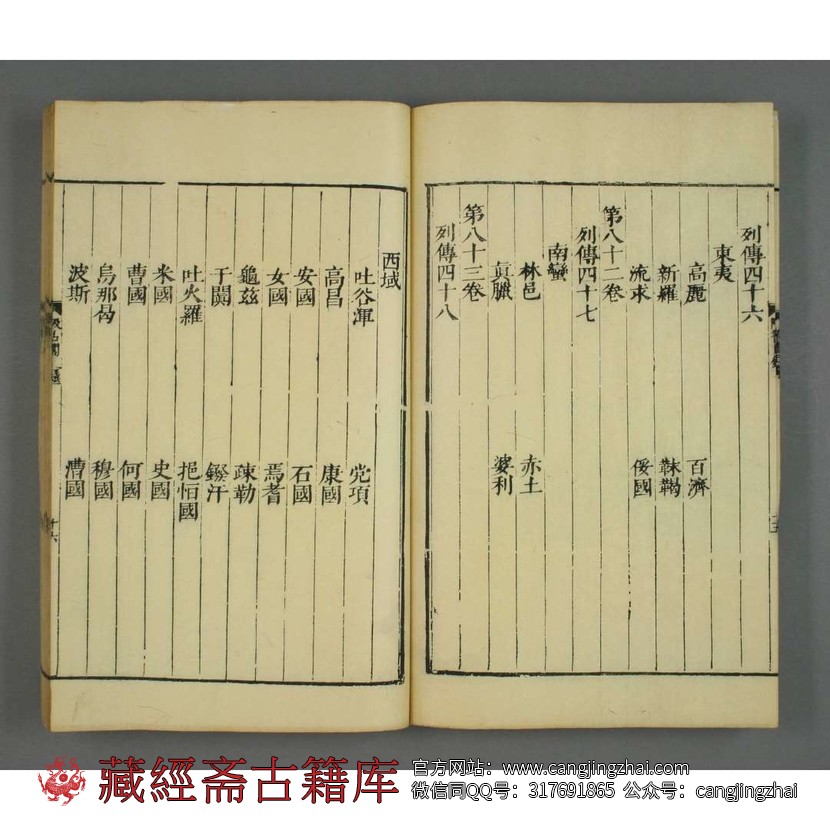 列傳四十六
東夷
高麗 百濟
新羅 靺鞨
流求 倭國
第八十二卷
列傳四十七
南蠻
林邑 赤土
真臘 婆利
第八十三卷
列傳四十八
西域
吐谷渾 党項
高昌 康國
安國 石國
女國 焉耆
龜茲 疎勒
于闐 鏺汗
吐火羅 挹怛國
米國 史國
曹國 何國
烏那曷 穆國
波斯 漕國
十六
藏經斋古籍库
官方网站：www.cangjingzhai.com
微信同QQ号：317691865 公众号：cangjingzhai